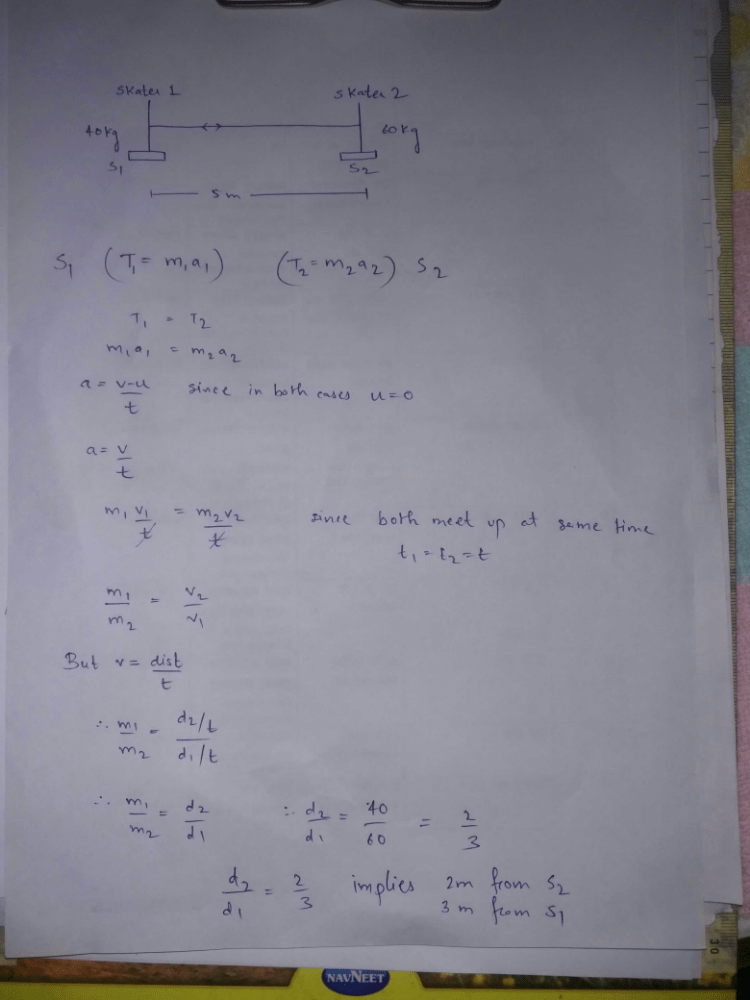 Skater 1 Skater 2
40kg 60kg
S1 S2
5m
S1 (T1 = m1a1) (T2 = m2a2) S2
T1 = T2
m1a1 = m2a2
a = v-u/t since in both cases u=0
a = v/t
m1 v1/t = m2v2/t since both meet up at same time
t1 = t2 = t
m1/m2 = v2/v1
But v = dist/t
∴ m1/m2 = d2/t / d1/t
∴ m1/m2 = d2/d1 ∴ d2/d1 = 40/60 = 2/3
d2/d1 = 2/3 implies 2m from S2
3m from S1
30
NAVNEET